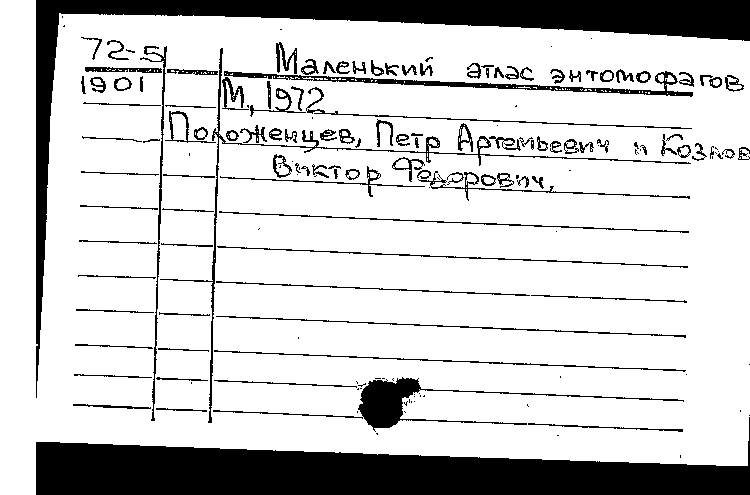 72-5 Маленький атлас энтомофагов
1901 М, 1972.
Положенцев, Петр Артемьевич и Козлов
Виктор Федорович.